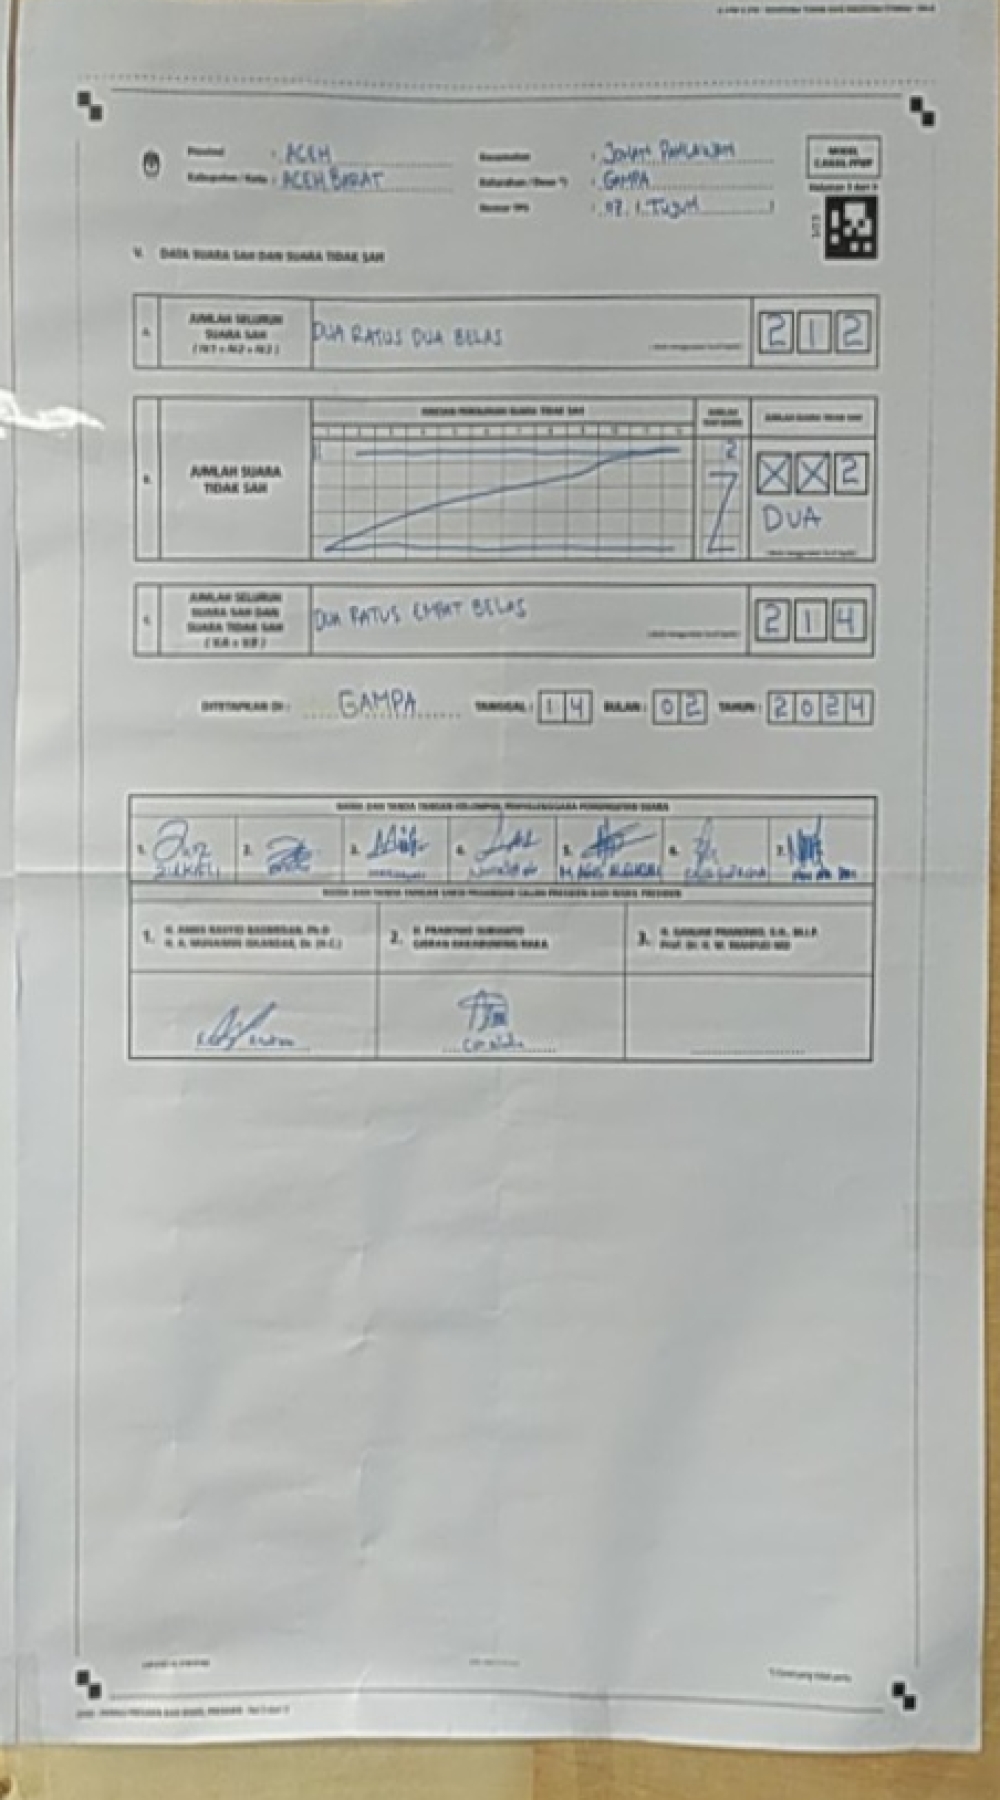 Provinsi : ACEH
Kabupaten / Kota : ACEH BARAT
Kecamatan : JOHAN PAHLAWAN
Kelurahan / Desa *) : GAMPA
Nomor TPS : 07 / TUJUH
MODEL
C.HASIL-PPWP
Halaman 3 dari 3
V. DATA SUARA SAH DAN SUARA TIDAK SAH
A. JUMLAH SELURUH
SUARA SAH
DUA RATUS DUA BELAS
2 1 2
B. JUMLAH SUARA
TIDAK SAH
RINCIAN PEROLEHAN SUARA TIDAK SAH
1 2 3 4 5 6 7 8 9 10 11 12
2
JUMLAH SUARA TIDAK SAH
X X 2
DUA
C. JUMLAH SELURUH
SUARA SAH DAN
SUARA TIDAK SAH
DUA RATUS EMPAT BELAS
2 1 4
DITETAPKAN DI : GAMPA TANGGAL : 1 4 BULAN : 0 2 TAHUN : 2 0 2 4
NAMA DAN TANDA TANGAN KELOMPOK PENYELENGGARA PEMUNGUTAN SUARA
1. 2. 3. 4. 5. 6. 7.
NAMA DAN TANDA TANGAN SAKSI PASANGAN CALON PRESIDEN DAN WAKIL PRESIDEN
1. H. ANIES RASYID BASWEDAN, Ph.D
H. A. MUHAIMIN ISKANDAR, Dr. (H.C.)
2. H. PRABOWO SUBIANTO
GIBRAN RAKABUMING RAKA
3. H. GANJAR PRANOWO, S.H., M.I.P.
Prof. Dr. H. M. MAHFUD MD
*) Coret yang tidak perlu